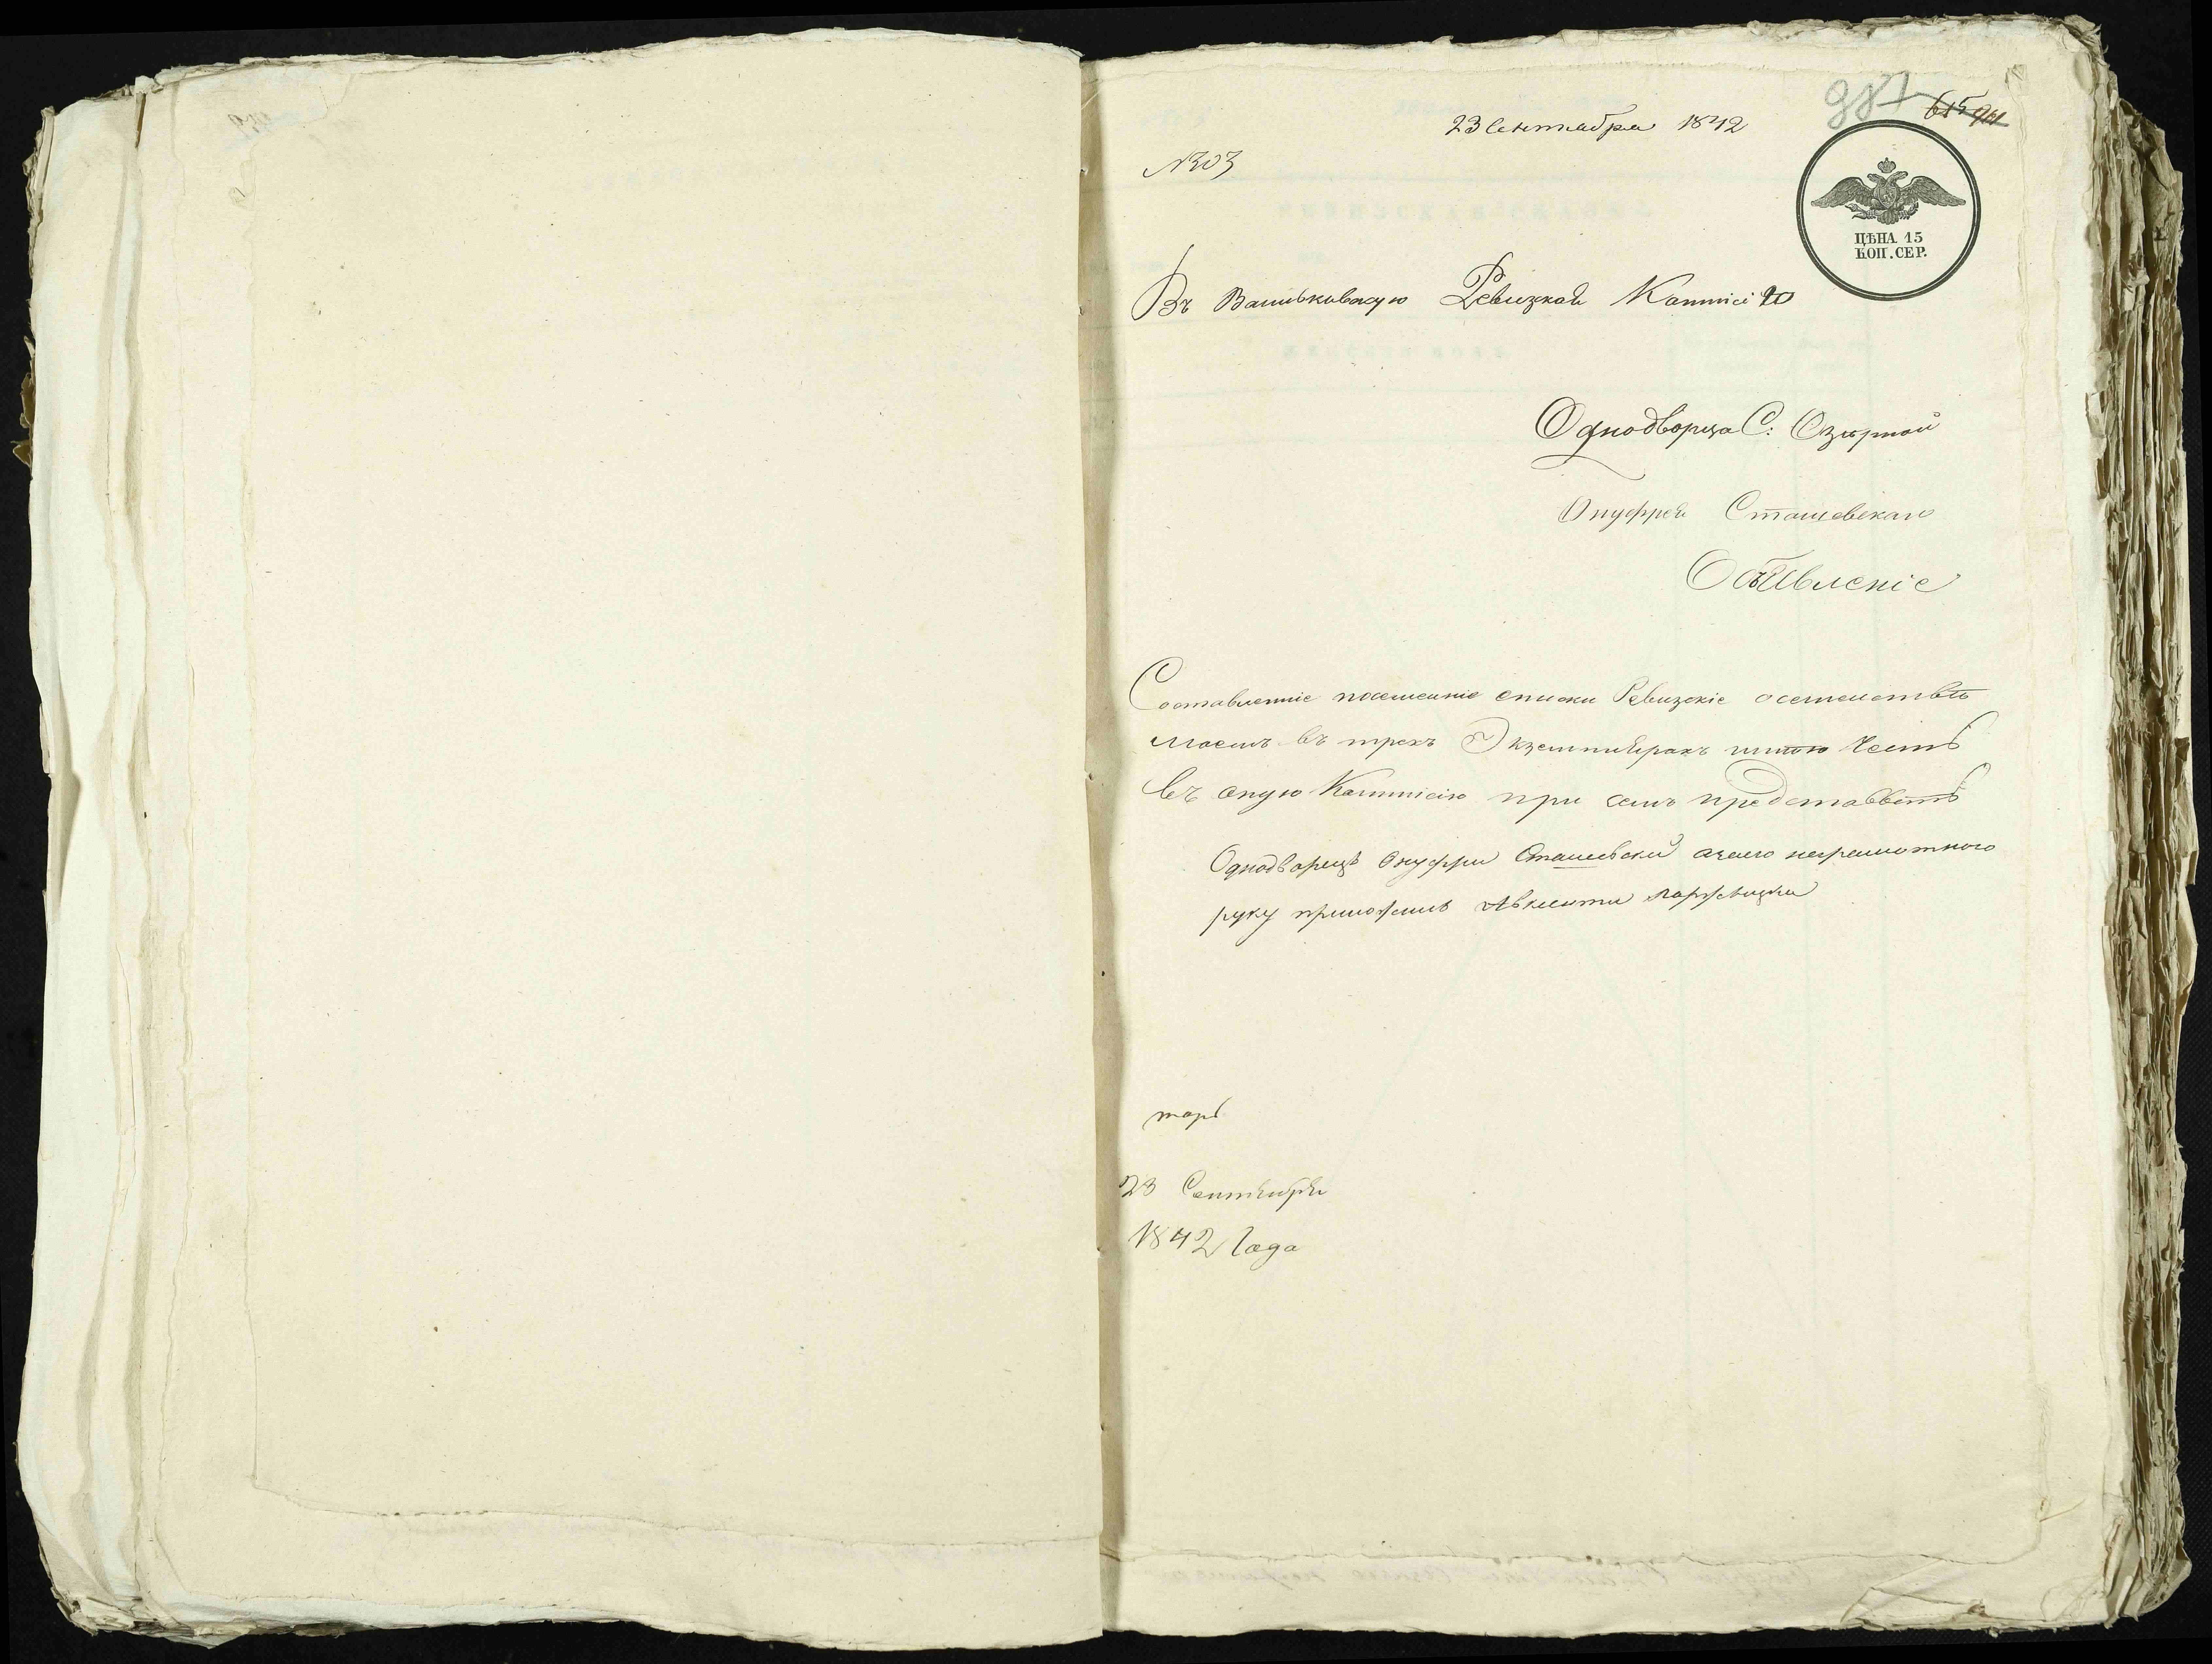 987 615
23 Сентабра 1842
№303
ЦѢНА 15
КОП. СЕР.
Въ Васильковскую Ревизкой Коммисiю
Однодворца С: Озирной
Онуфрея Сташевскаго
Обявленiе
Составленнiе посемейнiе списки Ревизскiе осемействѣ
моемъ въ трехъ Экземпляракъ имѣю честь
въ оную Коммисiю при семъ представить
Однодворецъ Онуфри Сташевски азаего неграмотного
руку приложилъ
23 Сентября
1842 Года